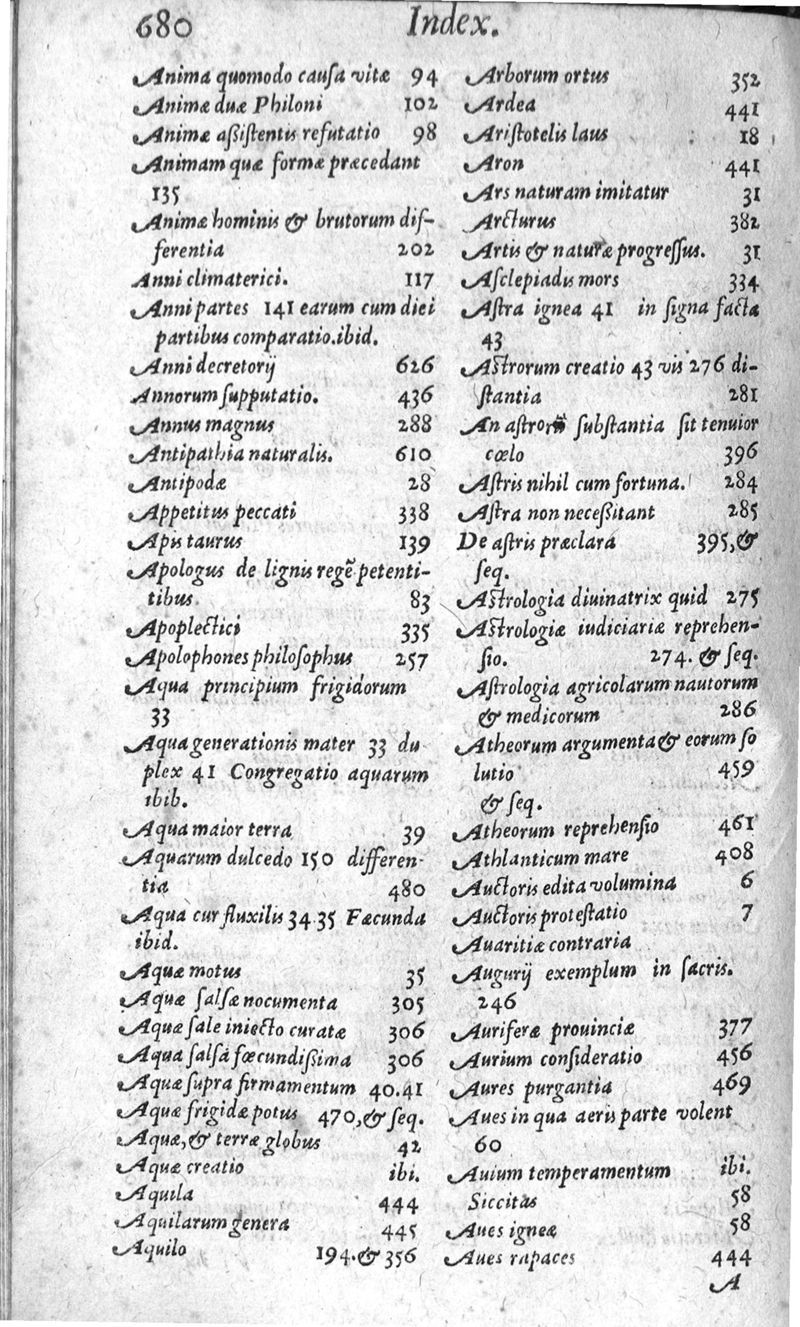 680 Index.
Anima quomodo cauſa vitæ 94
Animæ duæ Philoni 102
Animæ aßiſtentis refutatio 98
Animam quæ formæ præcedant
135
Animæ hominis & brutorum dif-
ferentia 202
Anni climaterici. 117
Anni partes 141 earum cum diei
partibus comparatio. ibid.
Anni decretorij 626
Annorum ſupputatio. 436
Annus magnus 288
Antipathia naturalis. 610
Antipodæ 28
Appetitus peccati 338
Apis taurus 139
Apologus de lignis regē petenti-
tibus. 83
Apoplectici 335
Apolophones philoſophus 257
Aqua principium frigidorum
33
Aqua generationis mater 33 du
plex 41 Congregatio aquarum
ibib.
Aqua maior terra 39
Aquarum dulcedo 150 differen-
tia 480
Aqua cur fluxilis 34 35 Fæcunda
ibid.
Aquæ motus 35
Aquæ ſalſæ nocumenta 305
Aquæ ſale iniecto curatæ 306
Aqua ſalſa fœcundißima 306
Aquæ ſupra firmamentum 40.41
Aquæ frigidæ potus 470, & ſeq.
Aquæ, & terræ globus 42
Aquæ creatio ibi.
Aquila 444
Aquilarum genera 445
Aquilo 194. & 356
Arborum ortus 352
Ardea 441
Ariſtotelis laus 18
Aron 441
Ars naturam imitatur 31
Arcturus 382
Artis & naturæ progreſſus. 31
Aſclepiadis mors 334
Aſtra ignea 41 in ſigna facta
43
Aſtrorum creatio 43 vis 276 di-
ſtantia 281
An aſtrorū ſubſtantia ſit tenuior
cœlo 396
Aſtris nihil cum fortuna. 284
Aſtra non neceßitant 285
De aſtris præclara 395, &
ſeq.
Aſtrologia diuinatrix quid 275
Aſtrologiæ iudiciariæ reprehen-
ſio. 274. & ſeq.
Aſtrologia agricolarum nautorum
& medicorum 286
Atheorum argumenta & eorum ſo
lutio 459
& ſeq.
Atheorum reprehenſio 461
Athlanticum mare 408
Auctoris edita volumina 6
Auctoris proteſtatio 7
Auaritiæ contraria
Augurij exemplum in ſacris.
246
Auriferæ prouinciæ 377
Aurium conſideratio 456
Aures purgantia 469
Aues in qua aeris parte volent
60
Auium temperamentum ibi.
Siccitas 58
Aues igneæ 58
Aues rapaces 444
A